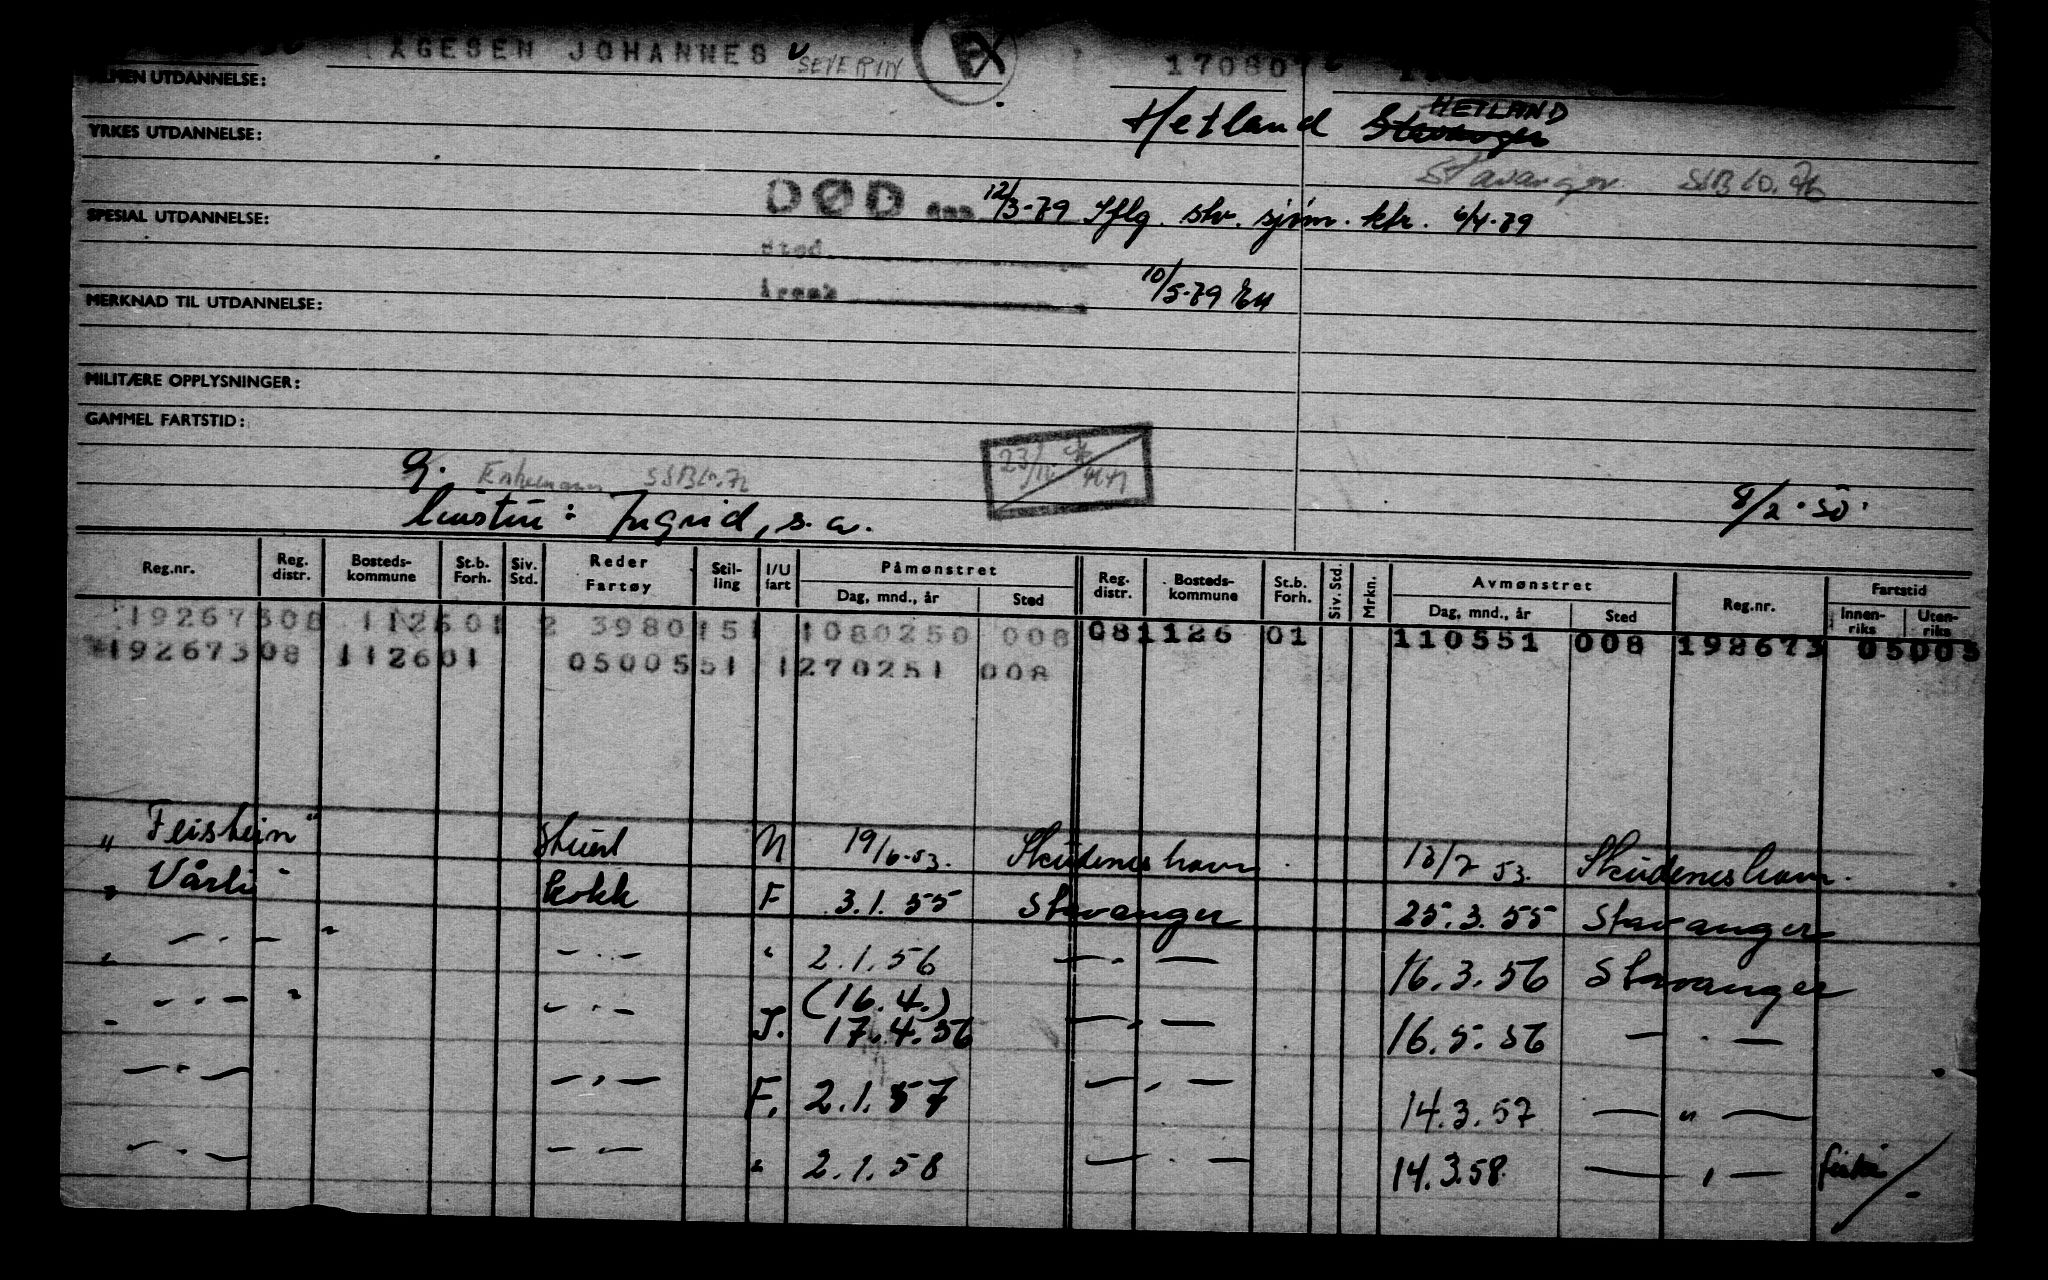 AGESEN JOHANNES SEVERIN EX 170807
ALMEN UTDANNELSE:
Hetland Stavanger HETLAND
YRKES UTDANNELSE:
Stavanger
DØD den 12/3-79 Iflg. stv. sjøm. ktr. 6/4-79
SPESIAL UTDANNELSE:
Sted
Årsak 10/5-79
MERKNAD TIL UTDANNELSE:
MILITÆRE OPPLYSNINGER:
GAMMEL FARTSTID:
g. Enkemann
23/11
Hustru: Ingrid, s.a. 8/2.50
Reg.nr. Reg. distr. Bosteds-kommune St.b. Forh. Siv. Std. Reder Fartøy Stil-ling I/U fart Påmønstret Dag, mnd., år Sted Reg. distr. Bosteds-kommune St.b. Forh. Siv. Std. Mrkn. Avmønstret Dag, mnd., år Sted Reg.nr. Fartstid Innen-riks Uten-riks
192673 08 1126 01 2 3980 151 1 080250 008 08 1126 01 110551 008 192673 05005
192673 08 1126 01 05005 51 1 270251 008
" Feistein" Stuert N 19/6.53. Skudeneshavn 13/7 53. Skudeneshavn.
" Vårli" kokk F 3.1.55 Stavanger 25.3.55 Stavanger
" — " — " — " — " 2.1.56 — " — 16.3.56 Stavanger
" — " — " — " — (16.4.)
I. 17.4.56 — " — 16.5.56 — " —
— " — — " — F. 2.1.57 — " — 14.3.57 — " —
— " — — " — " 2.1.58 — " — 14.3.58 — " —